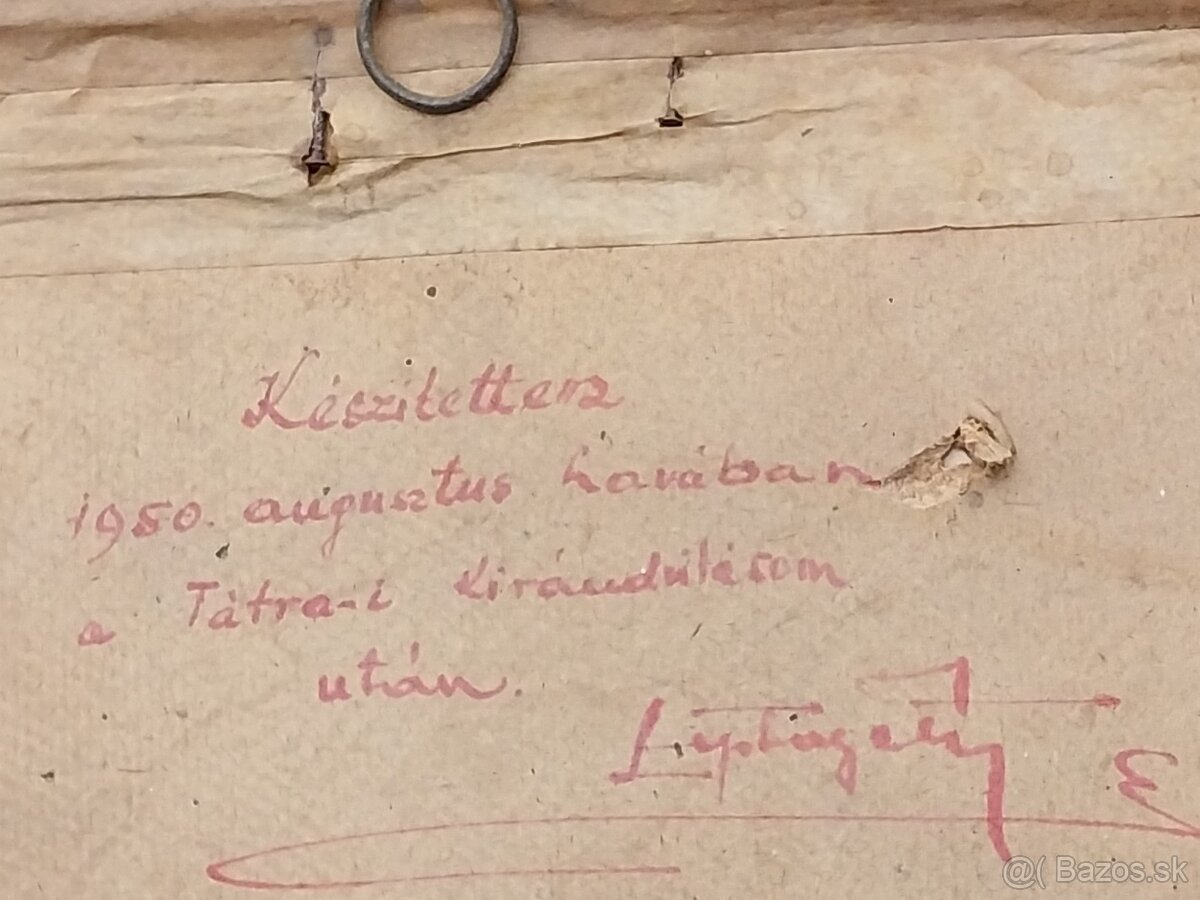 Készítettem
1950. augusztus havában
a Tátra-i Kirándulásom
után.
E
@( Bazos.sk